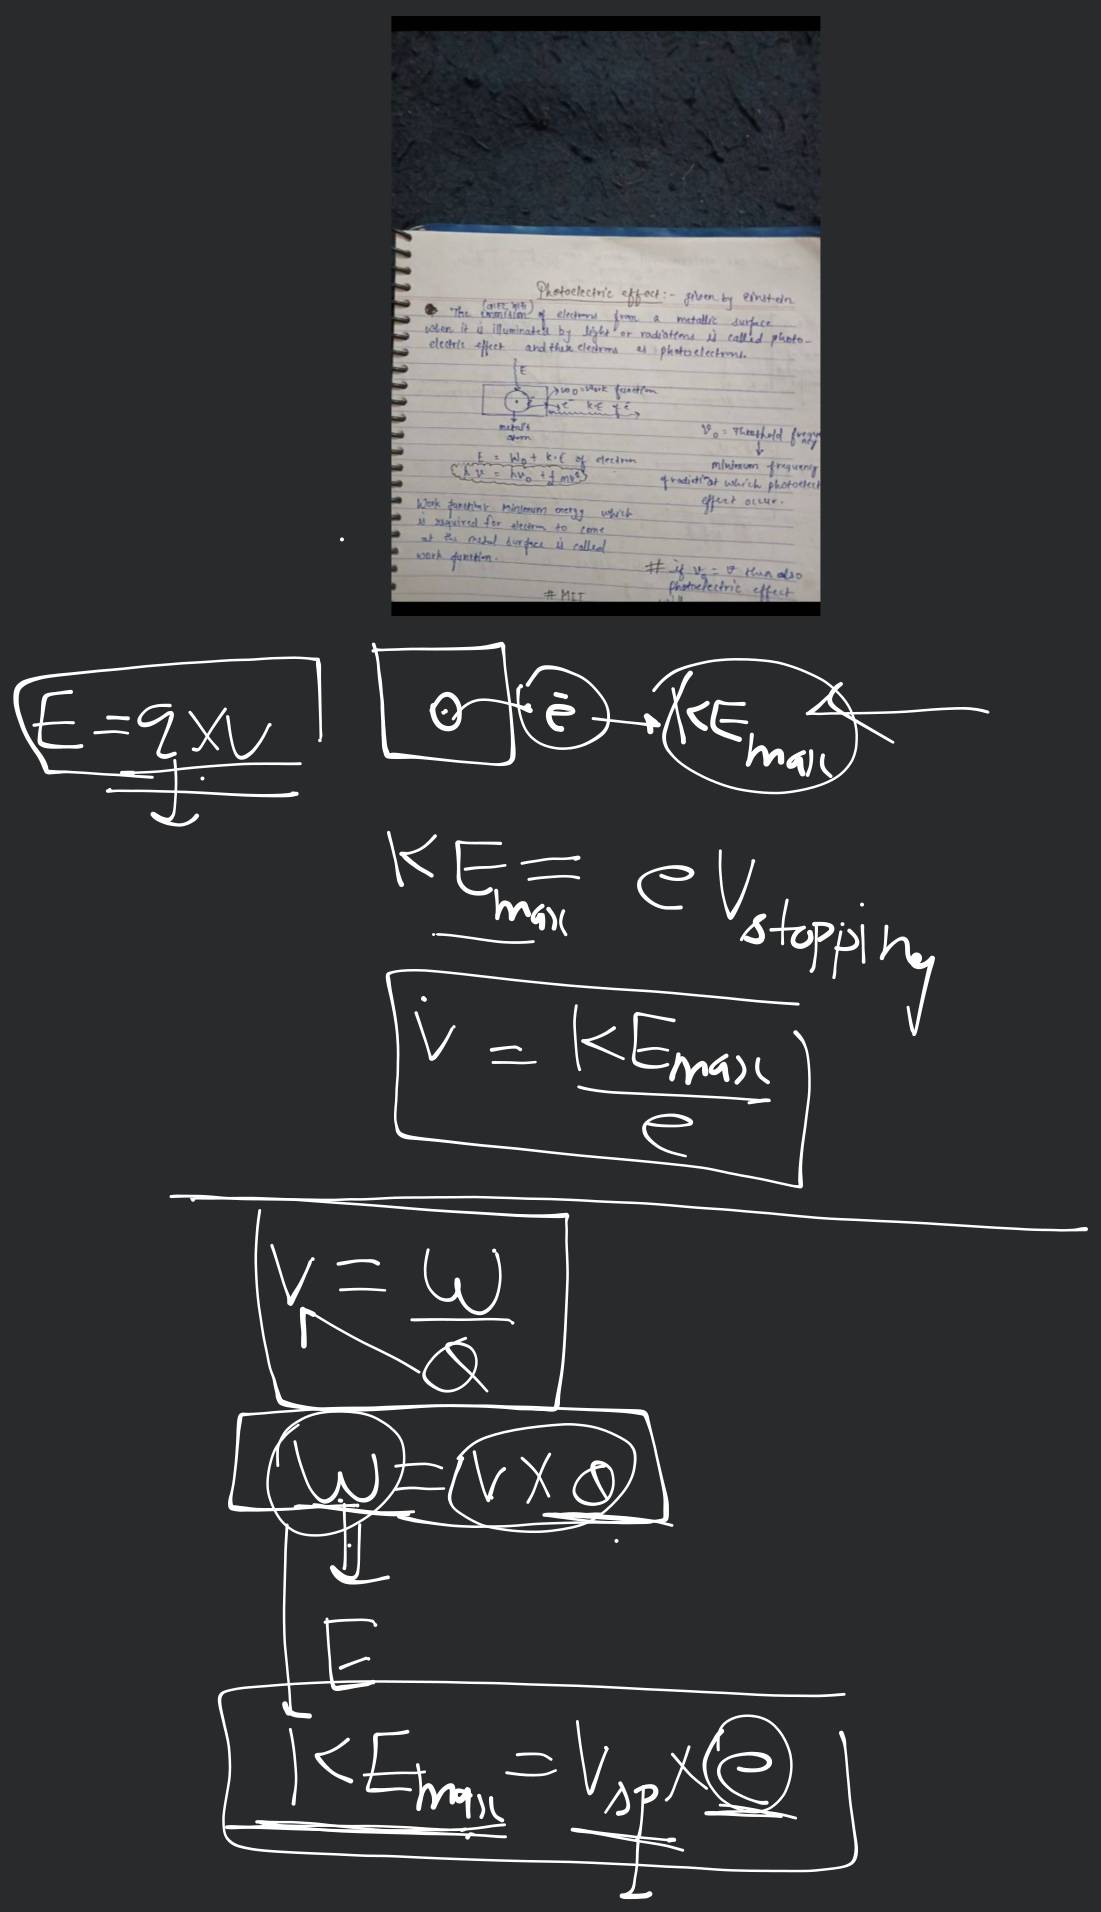 Photoelectric effect :- given by einstein
The emmision of electrons from a metallic surface
when it is illuminated by light or radiations is called photo-
electric effect and these electrons as photoelectrons.
E
w0 = work function
e⁻ K.E of e⁻
metal's
atom
ν₀ = Threshold frequency
minimum frequency
of radiation at which photoelect
effect occur.
E = W₀ + K.E of electron
hν = hν₀ + ½ mv²
Work function: Minimum energy which
is required for electron to come
at the metal surface is called
work function.
# if ν₀ = ν then also
photoelectric effect
# MIT
E = q x v
ē
KE max
KE max = e V stopping
v = KE max / e
V = W / Q
W = V x Q
E
KE max = V sp x e